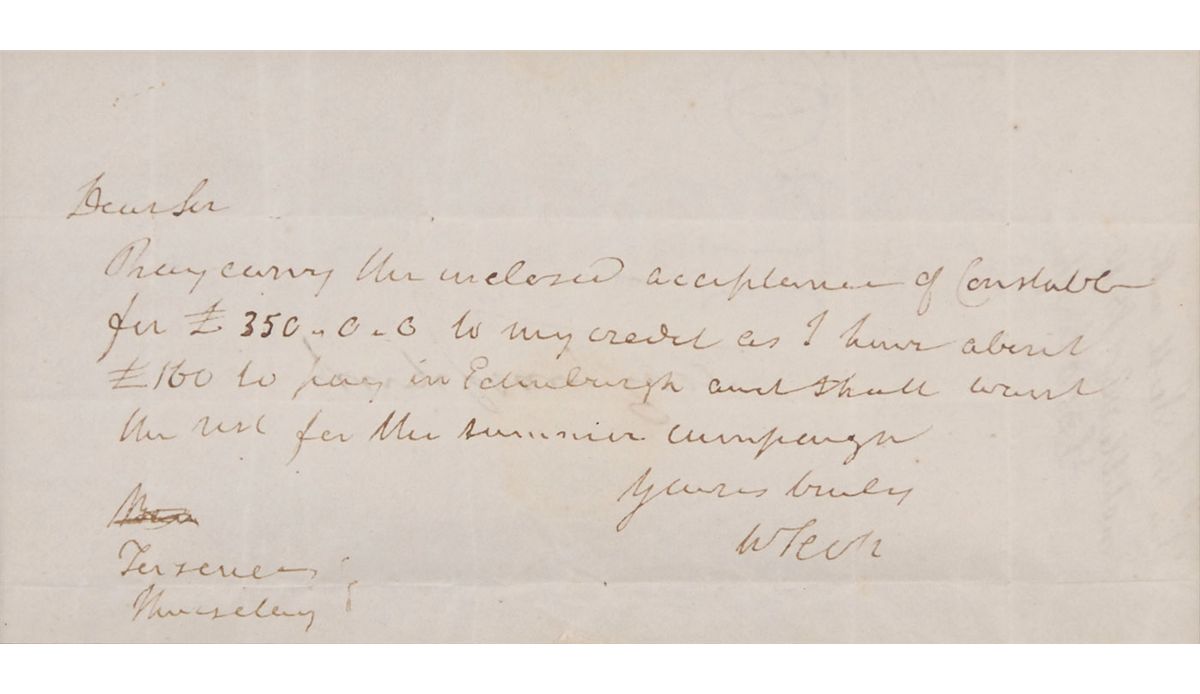 Dear Sir
Pray carry the inclosed acceptance of Constable
for £350..0..0 to my credit as I have about
£160 to pay in Edinburgh and shall want
the rest for the summer campaign
Yours truly
W Scott
Thursday